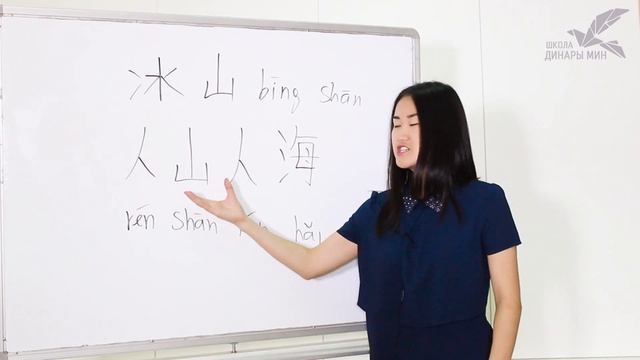 冰山 bīng shān
人山人海
rén shān rén hǎi
ШКОЛА
ДИНАРЫ МИН